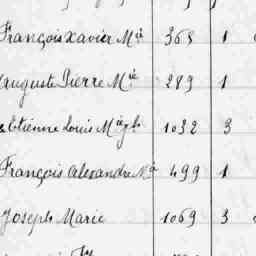 François Xavier Mié 365 1
Auguste Pierre Mié 289 1
Etienne Louis 1032 3
François Alexandre 499 1
Joseph Marie 1069 3